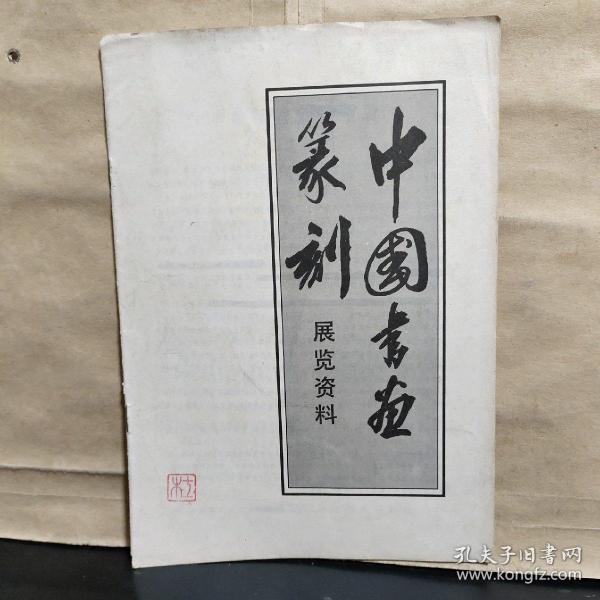 中国书画
篆刻
展览资料
杜
孔夫子旧书网
www.kongfz.com